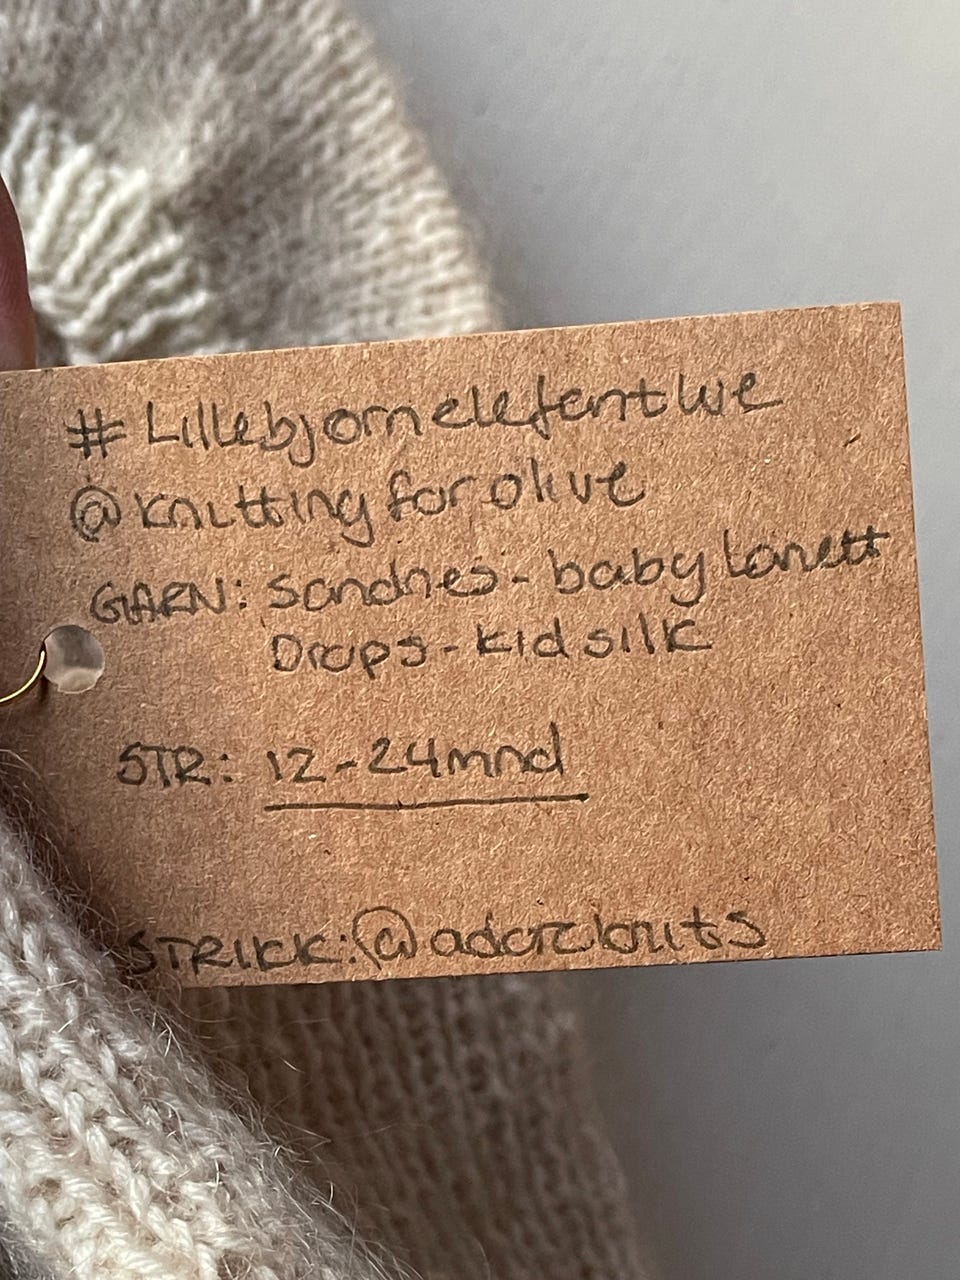 #Lillebjornelefenthue
@knittingforolive
GARN: sandnes - baby lanett
Drops - kid silk
STR: 12-24mnd
STRIKK: @adorcknits